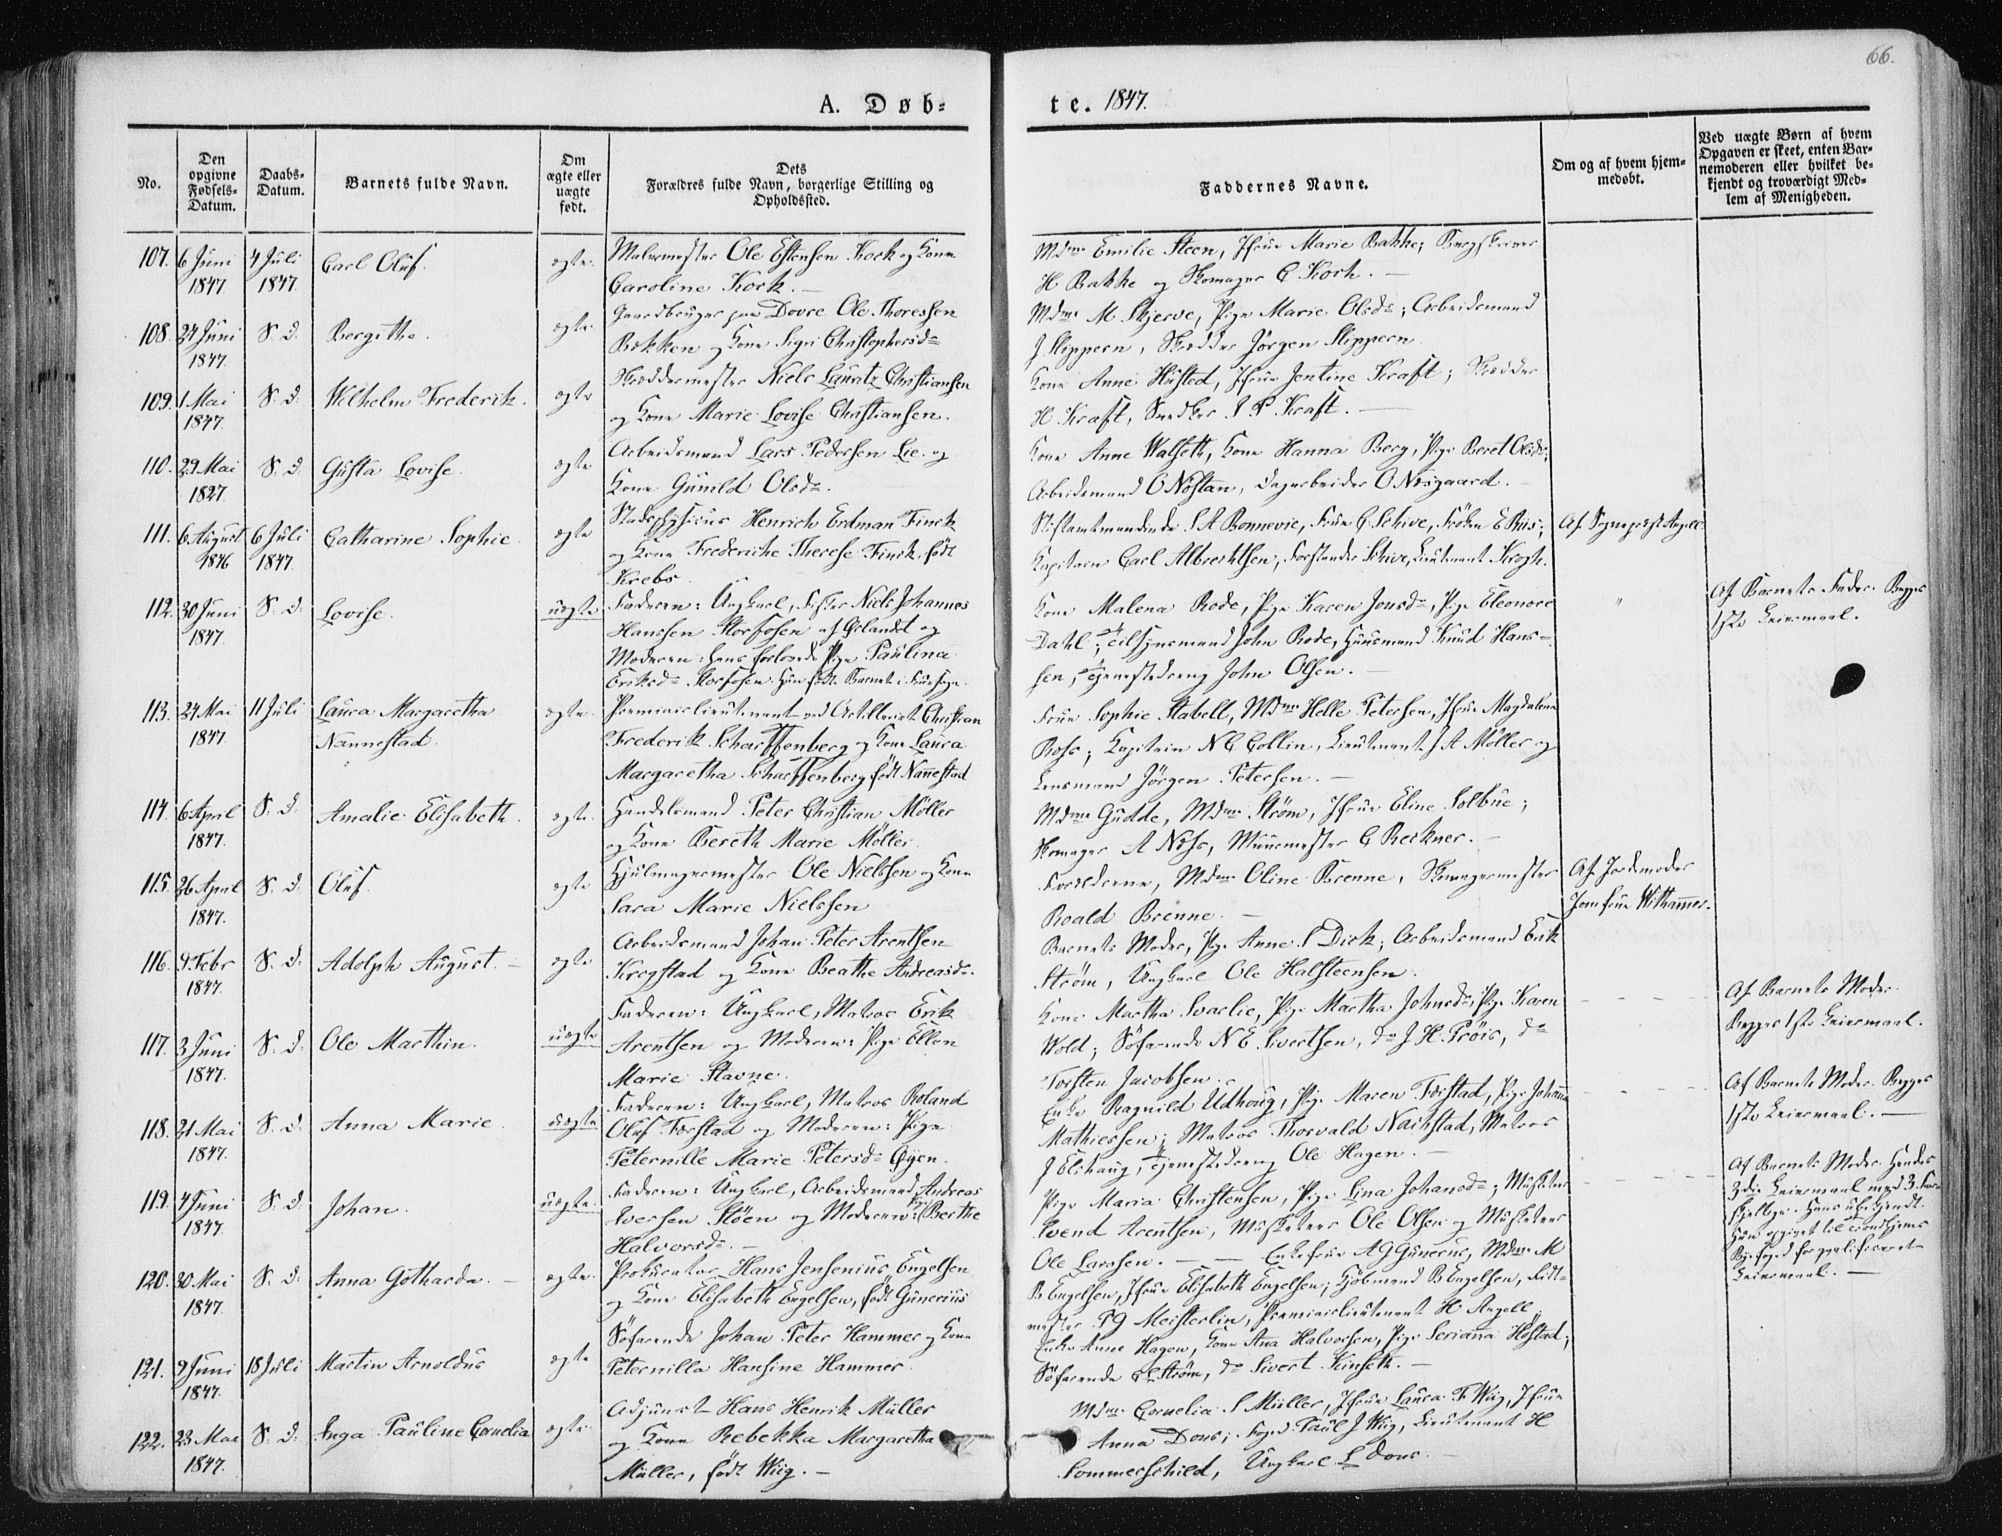 66.
A. Døb-
te. 1847.
No.
Den
opgivne
Fødsels-
Datum.
Daabs-
Datum.
Barnets fulde Navn.
Om
ægte eller
uægte
født.
Dets
Forældres fulde Navn, borgerlige Stilling og
Opholdssted.
Faddernes Navne.
Om og af hvem hjem-
medøbt.
Ved uægte Børn af hvem
Opgaven er skeet, enten Bar-
nemoderen eller hvilket be-
kjendt og troværdigt Med-
lem af Menigheden.
107. 6 Juni 1847 4 Juli 1847. Carl Oluf. ægte.
Malermester Ole Estensen Kock og Kone
Caroline Kock. —
Mdme Emilie Steen, Jfrue Marie Bakke; Bergskriver
H Bakke og Skomager C Koch. —
108. 24 Juni 1847. S. D. Bergithe. ægte.
Gaardbruger paa Dovre Ole Thoressen
Bakken og Kone Sigri Christophersdr
Mdme M Skjerve, Pige Marie Olsdr; Arbeidsmand
J Skippern, Skrædder Jörgen Skippern.
109. 1 Mai 1847. S. D. Wilhelm Frederik. ægte
Skræddermester Niels Lauritz Christiansen
og Kone Marie Lovise Christiansen.
Kone Anne Husted, Jfrue Jentine Kraft; Skrædder
H Kraft, Snedker I P Kraft. —
110. 29 Mai 1827. S. D. Gusta Lovise. ægte
Arbeidsmand Lars Pedersen Lie og
Kone Gunild Olsdr.
Kone Anne Walseth, Kone Hanna Berg, Pige Beret Olsdr;
Arbeidsmand O Nöstan, Dagarbeider O Nisgaard. —
111. 6 August 1846 6 Juli 1847. Catharine Sophie. ægte
Stadsphysicus Henrich Erdman Finck
og Kone Frederiche Therese Finck, født
Krebs.
Stiftamtmandinde S A Bonnevie, Frue C Schive, Frøken E Riis;
Kapitain Carl Albrechtsen, Forstander Schive, Lieutenant Krogh.
Af Sognepræst Angell
112. 30 Juni 1847. S. D. Lovise. uægte
Faderen: Ungkarl, Fisker Niels Johannes
Hanssen Storfosen af Ørlandet og
Moderen: hans forlovede Pige Paulina
Eriksdr Storfosen. Hun fødte Barnet i Fruesogn.
Kone Malena Rode, Pige Karen Jonsdr, Pige Eleonore
Dahl; Tilsynsmand John Rode, Huusmand Knud Hans-
sen, Tjenestedreng John Olsen. —
Af Barnets Fader. Begges
1ste Leiermaal.
113. 24 Mai 1847. 11 Juli Laura Margaretha
Nannestad. ægte.
Premierlieutenant ved Artilleriet Christian
Frederik Scharffenberg og Kone Laura
Margaretha Scharffenberg født Nannestad
Frue Sophie Stabell, Mdme Helle Petersen, Jfrue Magdalena
Ross; Kapitain N C Collin, Lieutenant J A Møller og
Lensmand Jörgen Petersen. —
114. 6 April 1847. S. D. Amalie Elisabeth. ægte.
Handelsmand Peter Christian Möller
og Kone Bereth Marie Möller.
Mdme Gudde, Mdme Strøm, Jfrue Eline Solbue;
Skomager A Niss, Muurmester C Beckner. —
115. 26 April 1847. S. D. Oluf. ægte
Hjulmagermester Ole Nielssen og Kone
Sara Marie Nielssen
Forældrene, Mdme Oline Brenne, Skomagermester
Roald Brenne. —
Af Jordemoder
Jomfrue Withammer.
116. 9 Febr 1847. S. D. Adolph August. — ægte
Arbeidsmand Johan Peter Arentsen
Krogstad og Kone Beathe Andreasdr.
Barnets Moder, Pige Anne S Dick; Arbeidsmand Erik
Strøm, Ungkarl Ole Halsteensen.
117. 3 Juni 1847. S. D. Ole Marthin. uægte
Faderen: Ungkarl, Matros Erik
Arentsen og Moderen: Pige Ellen
Marie Stavne.
Kone Martha Svarlie, Pige Martha Johnsdr, Pige Karen
Wold; Söfarende N E Sivertsen, do J H Prøis, do
Torsten Jacobsen.
Af Barnets Moder.
Begges 1ste Leiermaal.
118. 21 Mai 1847. S. D. Anna Marie. uægte
Faderen: Ungkarl, Matros Roland
Oluf Forstad og Moderen: Pige
Peternille Marie Petersdr Øyen.
Enke Ragnild Udhoug, Pige Maren Forstad, Pige Johanna
Mathiessen; Matros Thorvald Naihstad, Matros
J Elshaug, Tjenestedreng Ole Hagen. —
Af Barnets Moder. Begges
1ste Leiermaal. —
119. 4 Juni 1847. S. D. Johan. uægte.
Faderen: Ungkarl, Arbeidsmand Andreas
Iversen Støen og Moderen: Pige Berthe
Halvorsdr. —
Pige Maria Christensen, Pige Lina Johansdr; Musketeer
Svend Arentsen, Musketeer Ole Olsen og Musketeer
Ole Larssen. —
Af Barnets Moder. Hendes
3die Leiermaal med 3
Hans ubekjendt.
Hun opgivet til Trondhjems
Byefoged for qvalificeret
Leiermaal. —
120. 30 Mai 1847. S. D. Anna Gotharda. — ægte.
Prokurator Hans Jensenius Engelsen
og Kone Elisabeth Engelsen, født Gunerius
Enkefrue A G Gunerus, Mdme M
B Engelsen, Jfrue Elisabeth Engelsen; Kjøbmand B Engelsen, Ritt-
mester P G Meisterlin, Premierlieutenant H Angell.
121. 9 Juni 1847. 18 Juli Martin Arnoldus ægte
Söfarende Johan Peter Hammer og Kone
Peternilla Hansine Hammer.
Enke Anne Hagen, Kone Ana Halvorsen, Pige Serianna Høstad;
Söfarende C Strøm, do Sivert Kinseth. —
122. 23 Mai 1847. S. D. Inga Pauline Cornelia ægte.
Adjunct Hans Henrik Müller
og Kone Rebekka Margaretha
Müller, født Wiig. —
Mdme Cornelia S Müller, Jfrue Laura F Wiig, Jfrue
Anna Dons; Foged Paul J Wiig, Lieutenant H
Sommerschild, Ungkarl L Dons. —